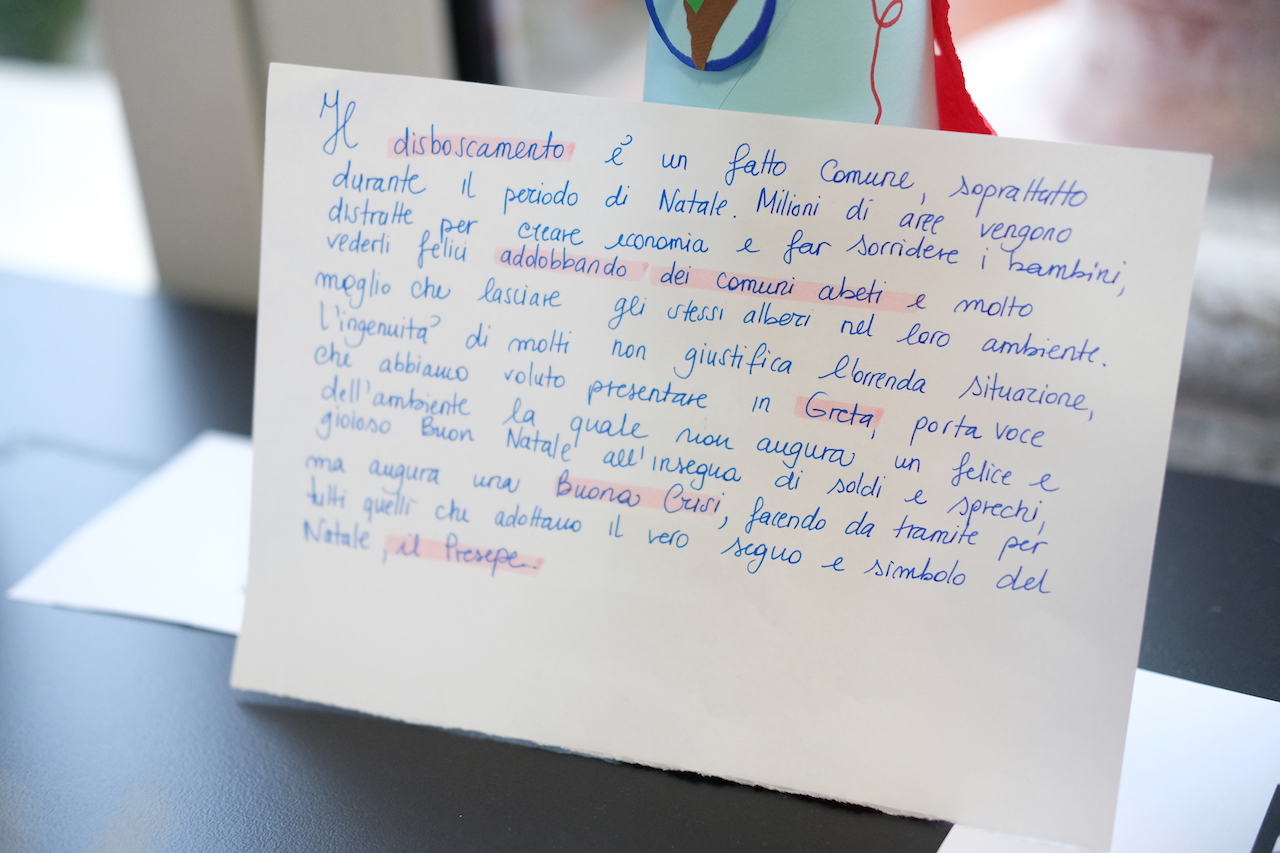 Il disboscamento è un fatto Comune, soprattutto
durante il periodo di Natale. Milioni di aree vengono
distrutte per creare economia e far sorridere i bambini,
vederli felici addobbando dei comuni abeti e molto
meglio che lasciare gli stessi alberi nel loro ambiente.
L'ingenuità di molti non giustifica l'orrenda situazione,
che abbiamo voluto presentare in Greta, porta voce
dell'ambiente la quale non augura un felice e
gioioso Buon Natale all'insegna di soldi e sprechi,
ma augura una Buona Crisi, facendo da tramite per
tutti quelli che adottano il vero segno e simbolo del
Natale, il Presepe.